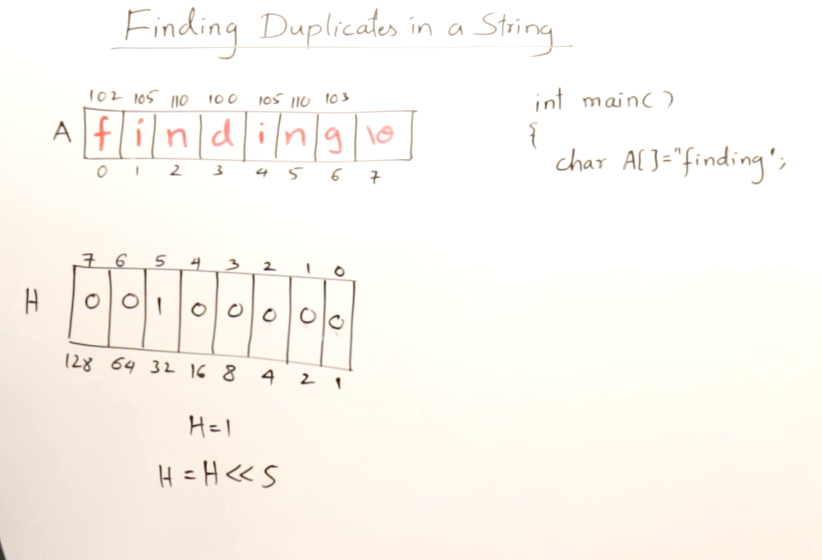 Finding Duplicates in a String
102 105 110 100 105 110 103
A f i n d i n g \0
0 1 2 3 4 5 6 7
int main()
{
char A[]="finding';
7 6 5 4 3 2 1 0
H 0 0 1 0 0 0 0 0
128 64 32 16 8 4 2 1
H=1
H=H<<5